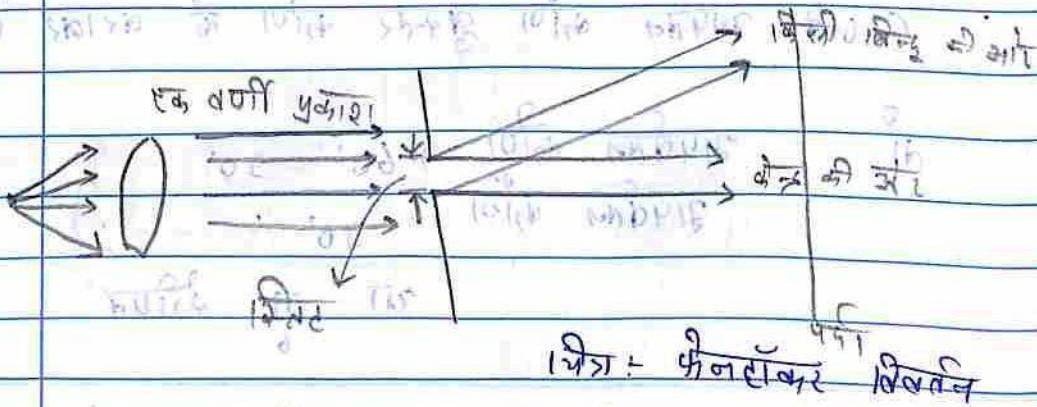 किसी बिन्दू की ओर
एक वर्णी प्रकाश
केन्द्र की ओर
स्लिट
पर्दा
चित्र :- फ्रेनहॉफर विवर्तन